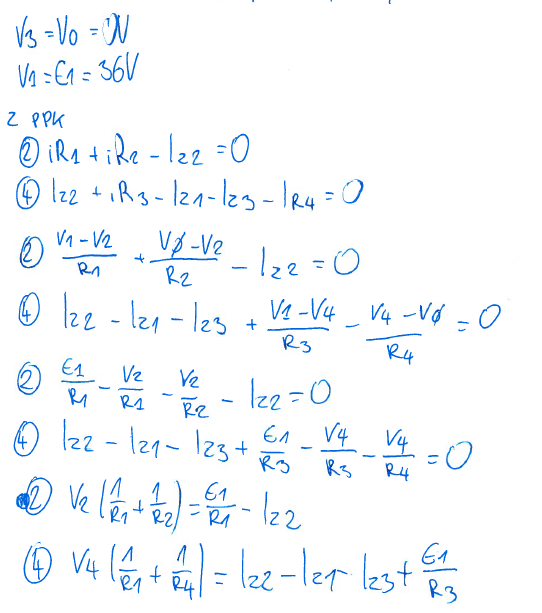 V3 = V0 = 0V
V1 = E1 = 36V
Z PPK
② iR1 + iR2 - Iz2 = 0
④ Iz2 + iR3 - Iz1 - Iz3 - IR4 = 0
② (V1 - V2)/R1 + (V0 - V2)/R2 - Iz2 = 0
④ Iz2 - Iz1 - Iz3 + (V1 - V4)/R3 - (V4 - V0)/R4 = 0
② E1/R1 - V2/R1 - V2/R2 - Iz2 = 0
④ Iz2 - Iz1 - Iz3 + E1/R3 - V4/R3 - V4/R4 = 0
② V2 (1/R1 + 1/R2) = E1/R1 - Iz2
④ V4 (1/R1 + 1/R4) = Iz2 - Iz1 - Iz3 + E1/R3